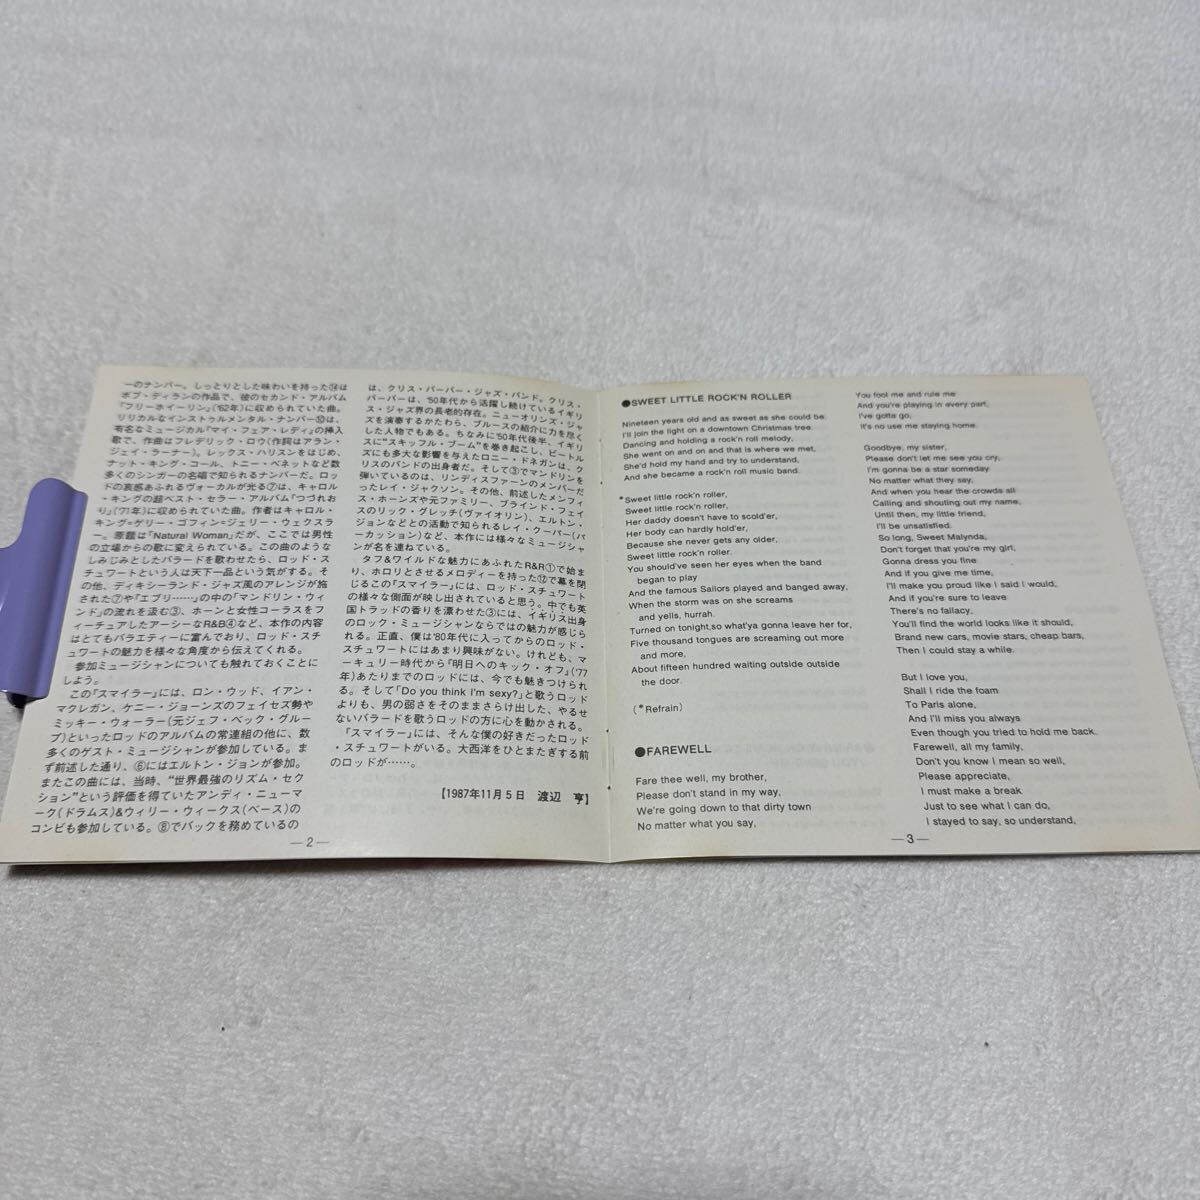 ーのナンバー。しっとりとした味わいを持った⑭は
ボブ・ディランの作品で、彼のセカンド・アルバム
『フリーホイーリン』('62年)に収められていた曲。
リリカルなインストゥルメンタル・ナンバー⑩は、
有名なミュージカル『マイ・フェア・レディ』の挿入
歌で、作曲はフレデリック・ロウ(作詞はアラン・
ジェイ・ラーナー)。レックス・ハリスンをはじめ、
ナット・キング・コール、トニー・ベネットなど数
多くのシンガーの名唱で知られるナンバーだ。ロッ
ドの哀感あふれるヴォーカルが光る⑦は、キャロル
・キングの超ベスト・セラー・アルバム『つづれお
り』('71年)に収められていた曲。作者はキャロル・
キング=ゲリー・ゴフィン=ジェリー・ウェクスラ
ー。原題は「Natural Woman」だが、ここでは男性
の立場からの歌に変えられている。この曲のような
しみじみとしたバラードを歌わせたら、ロッド・ス
チュワートという人は天下一品という気がする。そ
の他、ディキシーランド・ジャズ風のアレンジが施
された⑦や『エブリ……』の中の「マンドリン・ウィ
ンド」の流れを汲む③、ホーンと女性コーラスをフ
ィーチュアしたアーシーなR&B④など、本作の内容
はとてもバラエティーに富んでおり、ロッド・スチ
ュワートの魅力を様々な角度から伝えてくれる。
参加ミュージシャンについても触れておくことに
しよう。
この『スマイラー』には、ロン・ウッド、イアン・
マクレガン、ケニー・ジョーンズのフェイセズ勢や
ミッキー・ウォーラー(元ジェフ・ベック・グルー
プ)といったロッドのアルバムの常連組の他に、数
多くのゲスト・ミュージシャンが参加している。ま
ず前述した通り、⑥にはエルトン・ジョンが参加。
またこの曲には、当時、"世界最強のリズム・セク
ション"という評価を得ていたアンディ・ニューマ
ーク(ドラムス)&ウィリー・ウィークス(ベース)の
コンビも参加している。⑧でバックを務めているの
は、クリス・バーバー・ジャズ・バンド。クリス・
バーバーは、'50年代から活躍し続けているイギリ
ス・ジャズ界の長老的存在。ニューオリンズ・ジャ
ズを演奏するかたわら、ブルースの紹介に力を尽く
した人物でもある。ちなみに'50年代後半、イギリ
スに"スキッフル・ブーム"を巻き起こし、ビートル
ズにも多大な影響を与えたロニー・ドネガンは、ク
リスのバンドの出身者だ。そして③でマンドリンを
弾いているのは、リンディスファーンのメンバーだ
ったレイ・ジャクソン。その他、前述したメンフィ
ス・ホーンズや元ファミリー、ブラインド・フェイ
スのリック・グレッチ(ヴァイオリン)、エルトン・
ジョンなどとの活動で知られるレイ・クーパー(パ
ーカッション)など、本作には様々なミュージシャ
ンが名を連ねている。
タフ&ワイルドな魅力にあふれたR&R①で始ま
り、ホロリとさせるメロディーを持った⑫で幕を閉
じるこの『スマイラー』には、ロッド・スチュワート
の様々な側面が映し出されていると思う。中でも英
国トラッドの香りを漂わせた③には、イギリス出身
のロック・ミュージシャンならではの魅力が感じら
れる。正直、僕は'80年代に入ってからのロッド・
スチュワートにはあまり興味がない。けれども、マ
ーキュリー時代から『明日へのキック・オフ』('77
年)あたりまでのロッドには、今でも魅きつけられ
る。そして「Do you think I'm sexy?」と歌うロッド
よりも、男の弱さをそのままさらけ出した、やるせ
ないバラードを歌うロッドの方に心を動かされる。
『スマイラー』には、そんな僕の好きだったロッド
・スチュワートがいる。大西洋をひとまたぎする前
のロッドが……。
【1987年11月5日　渡辺　亨】
—2—
●SWEET LITTLE ROCK'N ROLLER
Nineteen years old and as sweet as she could be.
I'll join the light on a downtown Christmas tree.
Dancing and holding a rock'n roll melody,
She went on and on and that is where we met,
She'd hold my hand and try to understand,
And she became a rock'n roll music band.
*Sweet little rock'n roller,
Sweet little rock'n roller,
Her daddy doesn't have to scold'er,
Her body can hardly hold'er,
Because she never gets any older,
Sweet little rock'n roller.
You should've seen her eyes when the band
began to play
And the famous Sailors played and banged away,
When the storm was on she screams
and yells, hurrah.
Turned on tonight,so what'ya gonna leave her for,
Five thousand tongues are screaming out more
and more,
About fifteen hundred waiting outside outside
the door.
(*Refrain)
●FAREWELL
Fare thee well, my brother,
Please don't stand in my way,
We're going down to that dirty town
No matter what you say,
You fool me and rule me
And you're playing in every part,
I've gotta go,
It's no use me staying home.
Goodbye, my sister,
Please don't let me see you cry,
I'm gonna be a star someday
No matter what they say,
And when you hear the crowds all
Calling and shouting out my name,
Until then, my little friend,
I'll be unsatisfied.
So long, Sweet Malynda,
Don't forget that you're my girl,
Gonna dress you fine
And if you give me time,
I'll make you proud like I said I would,
And if you're sure to leave
There's no fallacy,
You'll find the world looks like it should,
Brand new cars, movie stars, cheap bars,
Then I could stay a while.
But I love you,
Shall I ride the foam
To Paris alone,
And I'll miss you always
Even though you tried to hold me back.
Farewell, all my family,
Don't you know I mean so well,
Please appreciate,
I must make a break
Just to see what I can do,
I stayed to say, so understand,
—3—